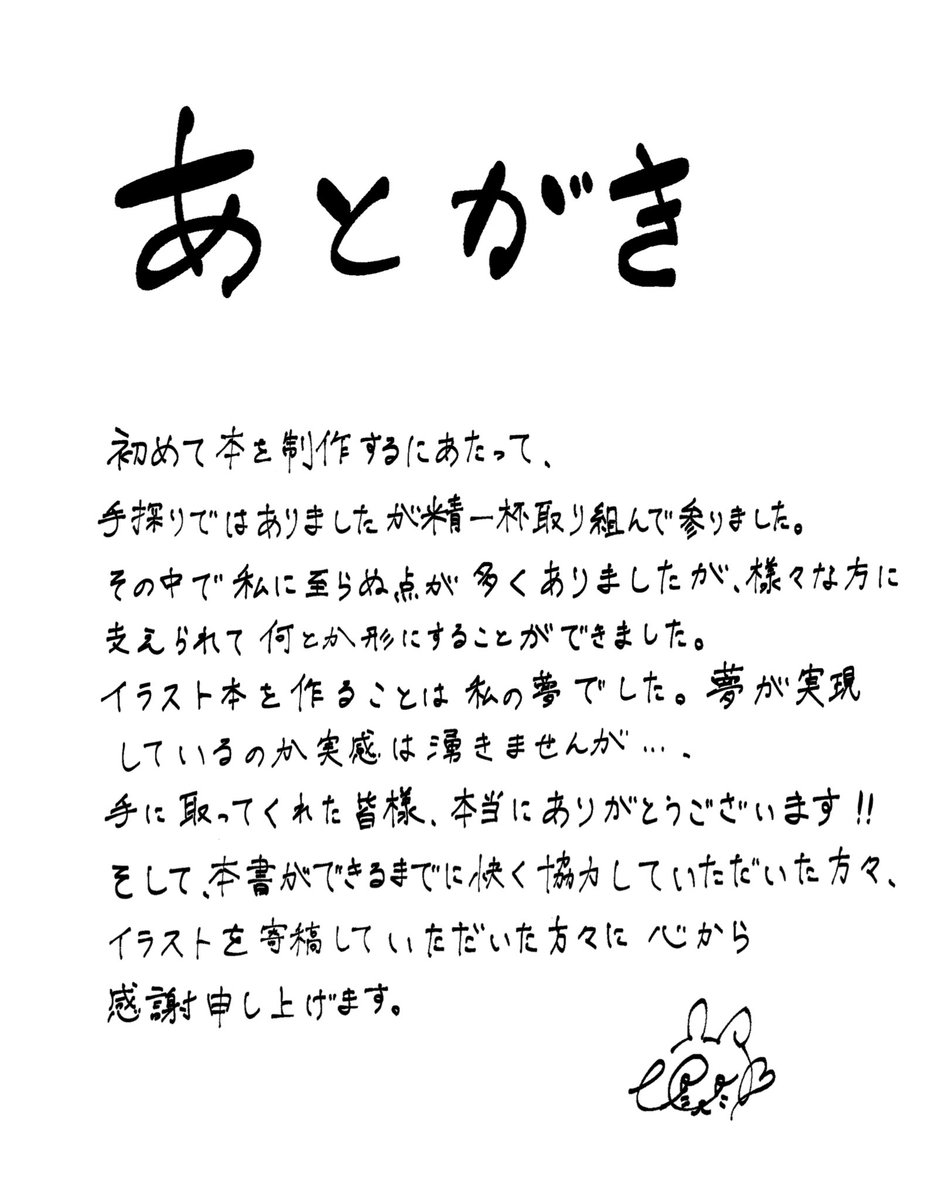 あとがき
初めて本を制作するにあたって、
手探りではありましたが精一杯取り組んで参りました。
その中で私に至らぬ点が多くありましたが、様々な方に
支えられて何とか形にすることができました。
イラスト本を作ることは私の夢でした。夢が実現
しているのか実感は湧きませんが…、
手に取ってくれた皆様、本当にありがとうございます!!
そして、本書ができるまでに快く協力していただいた方々、
イラストを寄稿していただいた方々に心から
感謝申し上げます。